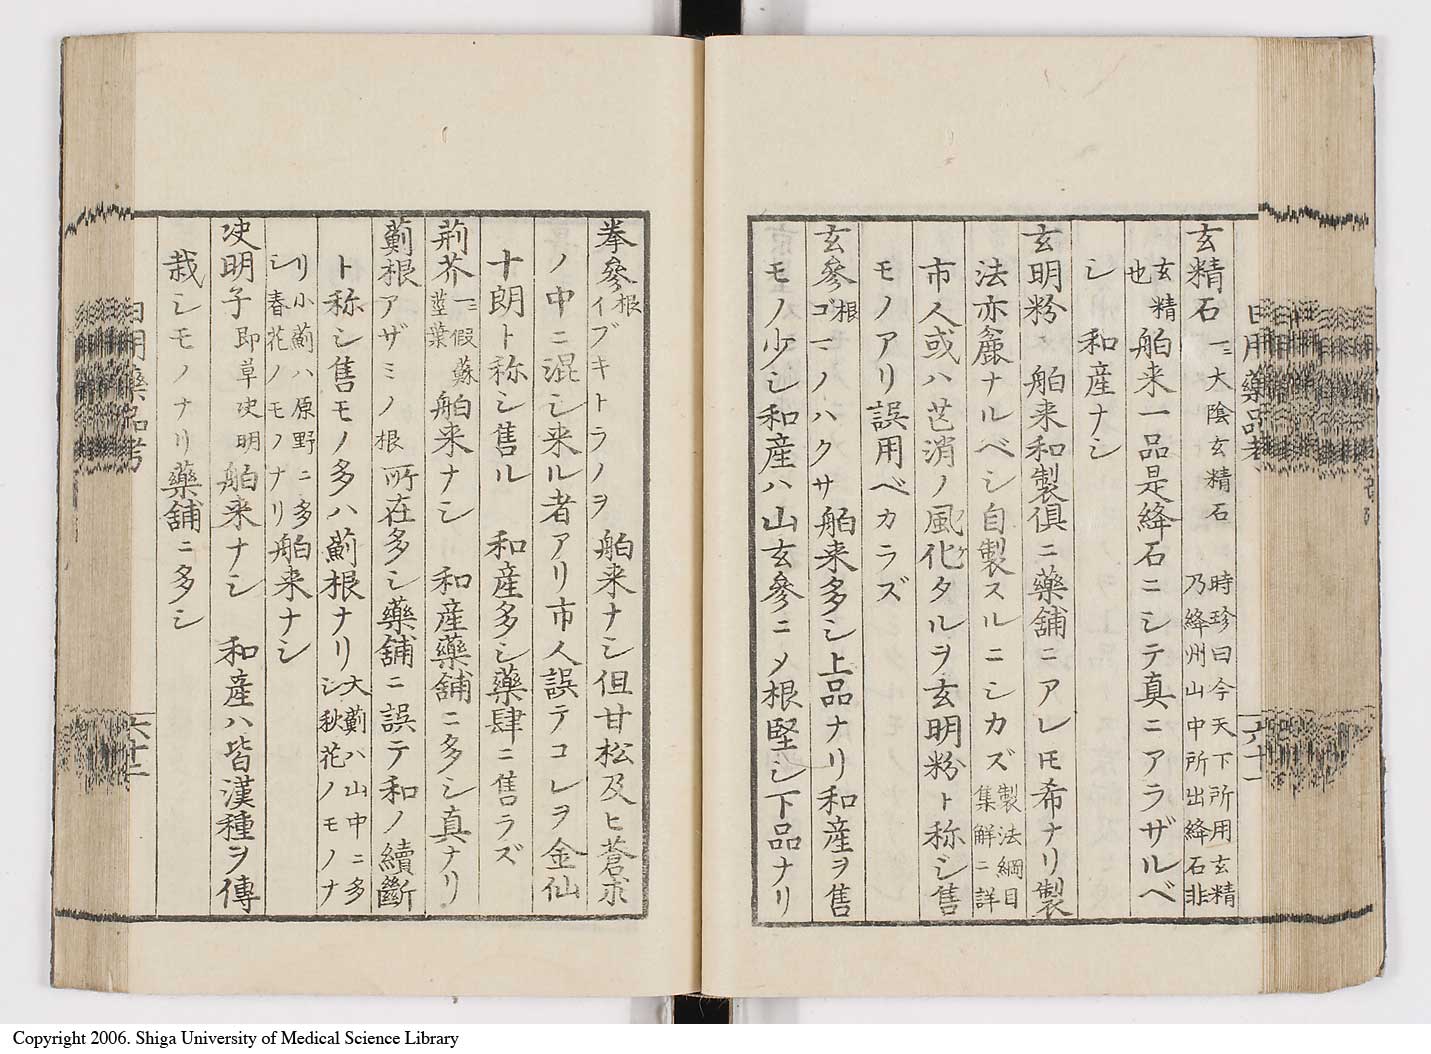 玄精石 一ニ大陰玄精石 時珍曰今天下所用玄精
乃絳州山中所出絳石非
玄精
也 舶来一品是絳石ニシテ真ニアラザルベ
シ 和産ナシ
玄明粉 舶来和製俱ニ藥舗ニアレㇳモ希ナリ製
法亦麁ナルベシ自製スルニシカズ 製法綱目
集解ニ詳
市人或ハ芒消ノ風化タルヲ玄明粉ト称シ售
モノアリ誤用ベカラズ
玄參 根 ゴマノハクサ 舶来多シ上品ナリ和産ヲ售
モノ少シ和産ハ山玄參ニメ根堅シ下品ナリ
拳參 根 イブキトラノヲ 舶来ナシ但甘松及ヒ蒼朮
ノ中ニ混シ来ル者アリ市人誤テコレヲ金仙
十朗ト称シ售ル 和産多シ藥肆ニ售ラズ
荊芥 一ニ假蘇
莖葉 舶来ナシ 和産藥舗ニ多シ真ナリ
薊根 アザミノ根 所在多シ藥舗ニ誤テ和ノ續斷
ト称シ售モノ多ハ薊根ナリ 大薊ハ山中ニ多
シ秋花ノモノナ
リ小薊ハ原野ニ多
シ春花ノモノナリ 舶来ナシ
决明子 即草决明 舶来ナシ 和産ハ皆漢種ヲ傳
栽シモノナリ藥舗ニ多シ
日用藥品考
六十一
日用藥品考
六十二
Copyright 2006. Shiga University of Medical Science Library